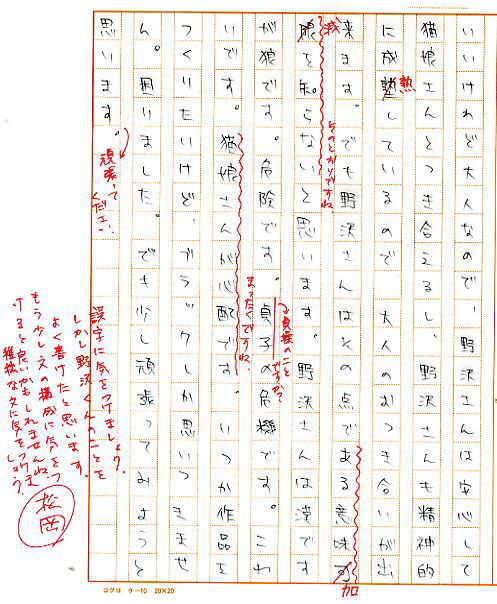 いいけれど大人なので、野沢さんは安心して
猫娘さんとつき合えるし、野沢さんも精神的
に成塾しているので、大人のおつき合いが出
熟
来ます。でも野沢さんはその点である意味可
加
そのとおりですね
を知らないと思います。野沢さんは漢です
が狼です。危険です。貞子の危機です。こわ
貞操のこと
ですか?
いです。猫娘さんが心配です。いつか作品を
まったくですね。
つくりたいけど、ブラックしか思いつきませ
ん。困りました。でも少し頑張ってみようと
思います。
頑張って
ください。
誤字に気をつけましょう。
しかし野沢くんのことを
よく書けたと思います。
もう少し文の構成に気をつ
けると良いかもしれませんね。
猥褻な文に気をつけましょう。
松岡
コクヨ ケー10 20×20